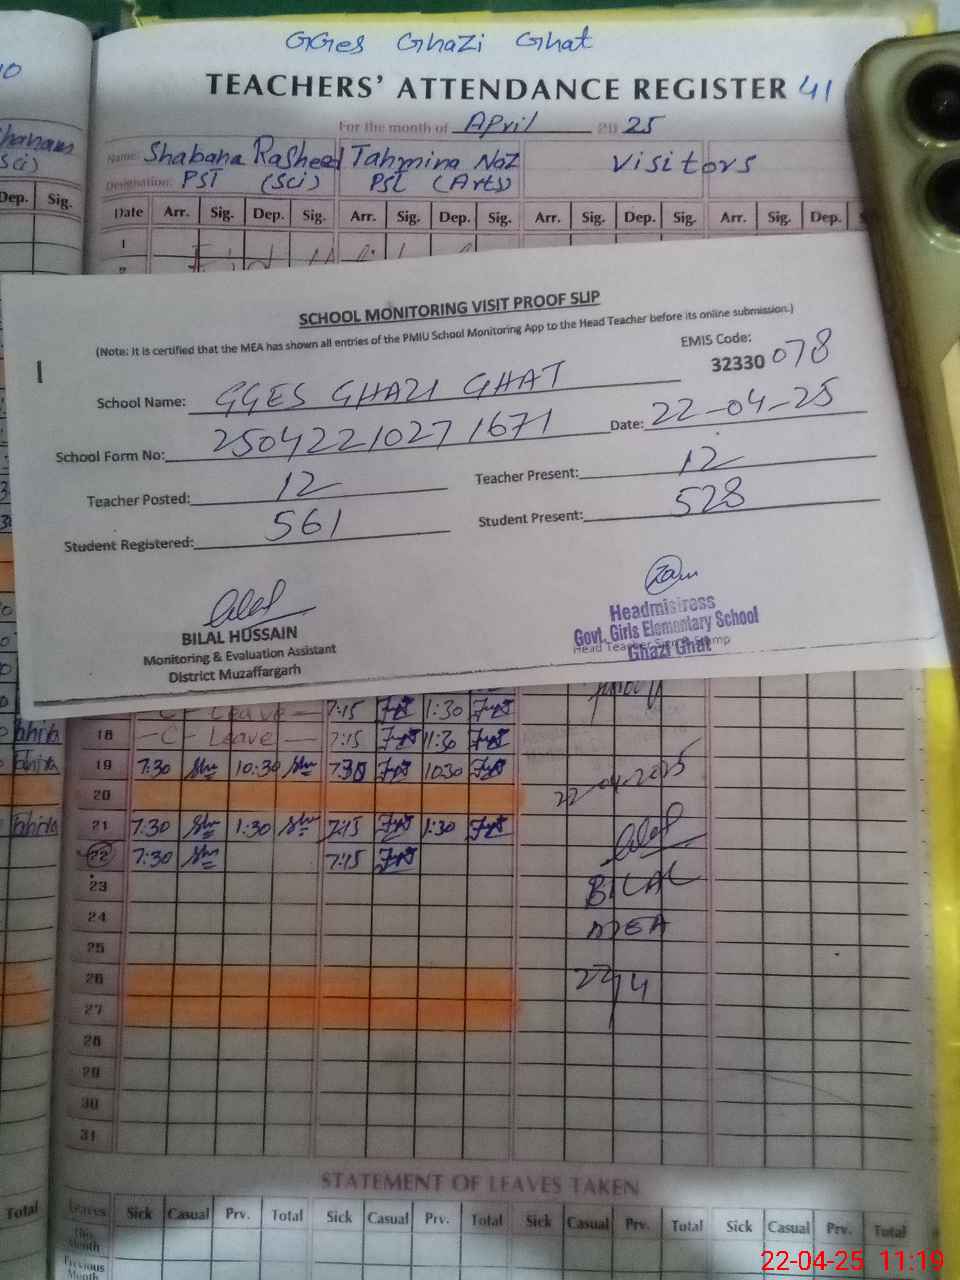 GGes Ghazi Ghat
TEACHERS' ATTENDANCE REGISTER 41
For the month of April 2025
Name: Shabana Rasheed Tahmina Naz Visitors
Designation: PST (Sci) PST (Arts)
Dep. Sig.
Date Arr. Sig. Dep. Sig. Arr. Sig. Dep. Sig. Arr. Sig. Dep. Sig. Arr. Sig. Dep.
1
SCHOOL MONITORING VISIT PROOF SLIP
(Note: It is certified that the MEA has shown all entries of the PMIU School Monitoring App to the Head Teacher before its online submission.)
EMIS Code:
32330 078
School Name: GGES GHAZI GHAT
School Form No: 25042210271671 Date: 22-04-25
Teacher Posted: 12 Teacher Present: 12
Student Registered: 561 Student Present: 528
BILAL HUSSAIN
Monitoring & Evaluation Assistant
District Muzaffargarh
Headmistress
Govt. Girls Elementary School
Ghazi Ghat
C- Leave - 7:15 1:30
18 -C- Leave - 7:15 11:30
19 7:30 10:30 7:30 10:30
20 22-04-2025
21 7:30 1:30 7:15 1:30
22 7:30 7:15
23 BILAL
24 MEA
25
26 22/4
27
28
29
30
31
STATEMENT OF LEAVES TAKEN
Total Leaves Sick Casual Prv. Total Sick Casual Prv. Total Sick Casual Prv. Total Sick Casual Prv. Total
This Month
Previous Month
22-04-25 11:19